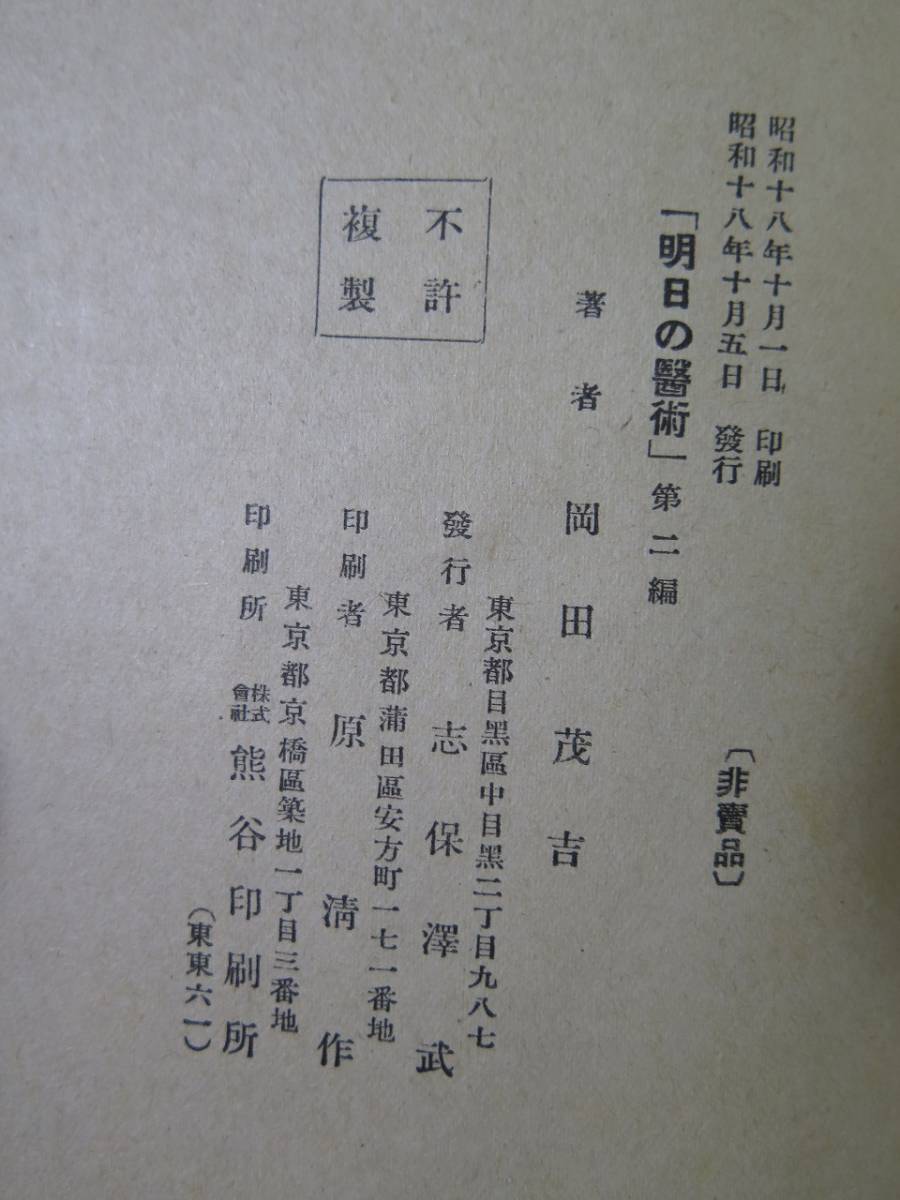 昭和十八年十月一日 印刷
昭和十八年十月五日 發行
〔非賣品〕
「明日の醫術」第二編
著者 岡田茂吉
東京都目黑區中目黑二丁目九八七
發行者 志保澤武
東京都蒲田區安方町一七一番地
印刷者 原淸作
東京都京橋區築地一丁目三番地
印刷所 株式會社 熊谷印刷所
(東東六一)
不許
複製